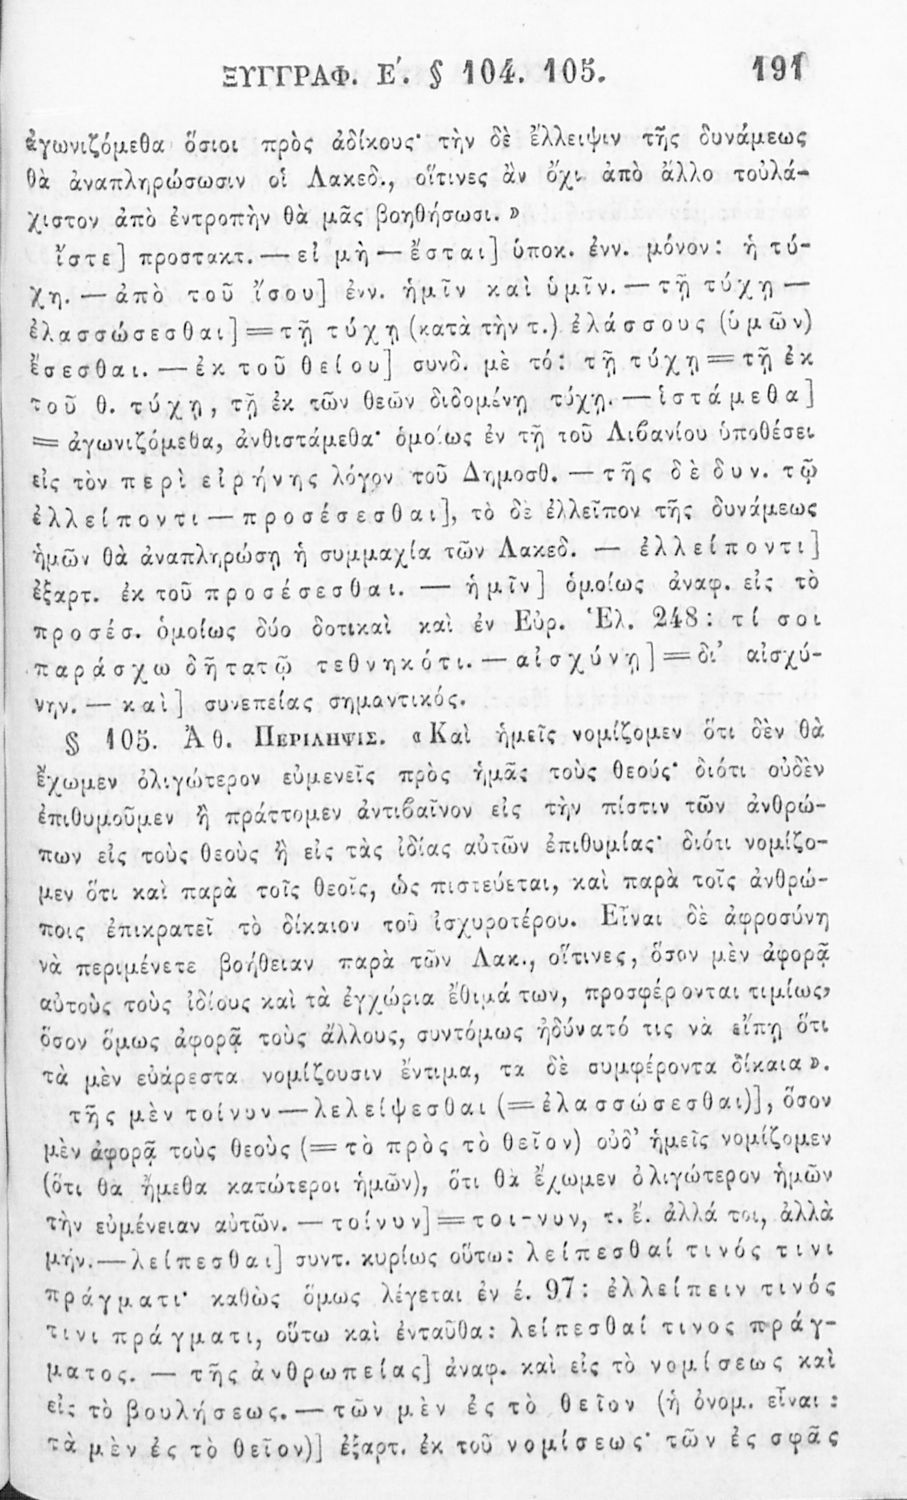 ΞΥΓΓΡΑΦ. Ε΄. § 104. 105. 191
ἀγωνιζόμεθα ὅσιοι πρὸς ἀδίκους· τὴν δὲ ἔλλειψιν τῆς δυνάμεως
θὰ ἀναπληρώσωσιν οἱ Λακεδ., οἵτινες ἂν ὄχι ἀπὸ ἄλλο τοὐλά-
χιστον ἀπὸ ἐντροπὴν θὰ μᾶς βοηθήσωσι.»
ἴστε] προστακτ. — εἰ μὴ — ἔσται] ὑποκ. ἐνν. μόνον: ἡ τύ-
χη. — ἀπὸ τοῦ ἴσου] ἐνν. ἡμῖν καὶ ὑμῖν. — τῇ τύχῃ —
ἐλασσώσεσθαι] = τῇ τύχῃ (κατὰ τὴν τ.) ἐλάσσους (ὑμῶν)
ἔσεσθαι. — ἐκ τοῦ θείου] συνδ. μὲ τό: τῇ τύχῃ = τῇ ἐκ
τοῦ θ. τύχῃ, τῇ ἐκ τῶν θεῶν διδομένῃ τύχῃ. — ἱστάμεθα]
= ἀγωνιζόμεθα, ἀνθιστάμεθα· ὁμοίως ἐν τῇ τοῦ Λιβανίου ὑποθέσει
εἰς τὸν περὶ εἰρήνης λόγον τοῦ Δημοσθ. — τῆς δὲ δυν. τῷ
ἐλλείποντι — προσέσεσθαι], τὸ δὲ ἐλλεῖπον τῆς δυνάμεως
ἡμῶν θὰ ἀναπληρώσῃ ἡ συμμαχία τῶν Λακεδ. — ἐλλείποντι]
ἐξαρτ. ἐκ τοῦ προσέσεσθαι. — ἡμῖν] ὁμοίως ἀναφ. εἰς τὸ
προσέσ. ὁμοίως δύο δοτικαὶ καὶ ἐν Εὐρ. Ἑλ. 248: τί σοι
παράσχω δῆτα τῷ τεθνηκότι. — αἰσχύνῃ] = δι' αἰσχύ-
νην. — καὶ] συνεπείας σημαντικός.
§ 105. Ἀθ. ΠΕΡΙΛΗΨΙΣ. «Καὶ ἡμεῖς νομίζομεν ὅτι δὲν θὰ
ἔχωμεν ὀλιγώτερον εὐμενεῖς πρὸς ἡμᾶς τοὺς θεούς· διότι οὐδὲν
ἐπιθυμοῦμεν ἢ πράττομεν ἀντιβαῖνον εἰς τὴν πίστιν τῶν ἀνθρώ-
πων εἰς τοὺς θεοὺς ἢ εἰς τὰς ἰδίας αὐτῶν ἐπιθυμίας· διότι νομίζο-
μεν ὅτι καὶ παρὰ τοῖς θεοῖς, ὡς πιστεύεται, καὶ παρὰ τοῖς ἀνθρώ-
ποις ἐπικρατεῖ τὸ δίκαιον τοῦ ἰσχυροτέρου. Εἶναι δὲ ἀφροσύνη
νὰ περιμένετε βοήθειαν παρὰ τῶν Λακ., οἵτινες, ὅσον μὲν ἀφορᾷ
αὐτοὺς τοὺς ἰδίους καὶ τὰ ἐγχώρια ἔθιμά των, προσφέρονται τιμίως,
ὅσον ὅμως ἀφορᾷ τοὺς ἄλλους, συντόμως ἠδύνατό τις νὰ εἴπῃ ὅτι
τὰ μὲν εὐάρεστα νομίζουσιν ἔντιμα, τὰ δὲ συμφέροντα δίκαια».
τῆς μὲν τοίνυν — λελείψεσθαι (= ἐλασσώσεσθαι)], ὅσον
μὲν ἀφορᾷ τοὺς θεοὺς (= τὸ πρὸς τὸ θεῖον) οὐδ' ἡμεῖς νομίζομεν
(ὅτι θὰ ἤμεθα κατώτεροι ἡμῶν), ὅτι θὰ ἔχωμεν ὀλιγώτερον ἡμῶν
τὴν εὐμένειαν αὐτῶν. — τοίνυν] = τοι-νυν, τ. ἔ. ἀλλά τοι, ἀλλὰ
μήν. — λείπεσθαι] συντ. κυρίως οὕτω: λείπεσθαί τινός τινι
πράγματι· καθὼς ὅμως λέγεται ἐν έ. 97: ἐλλείπειν τινός
τινι πράγματι, οὕτω καὶ ἐνταῦθα: λείπεσθαί τινος πράγ-
ματος. — τῆς ἀνθρωπείας] ἀναφ. καὶ εἰς τὸ νομίσεως καὶ
εἰς τὸ βουλήσεως. — τῶν μὲν ἐς τὸ θεῖον (ἡ ὀνομ. εἶναι:
τὰ μὲν ἐς τὸ θεῖον)] ἐξαρτ. ἐκ τοῦ νομίσεως· τῶν ἐς σφᾶς